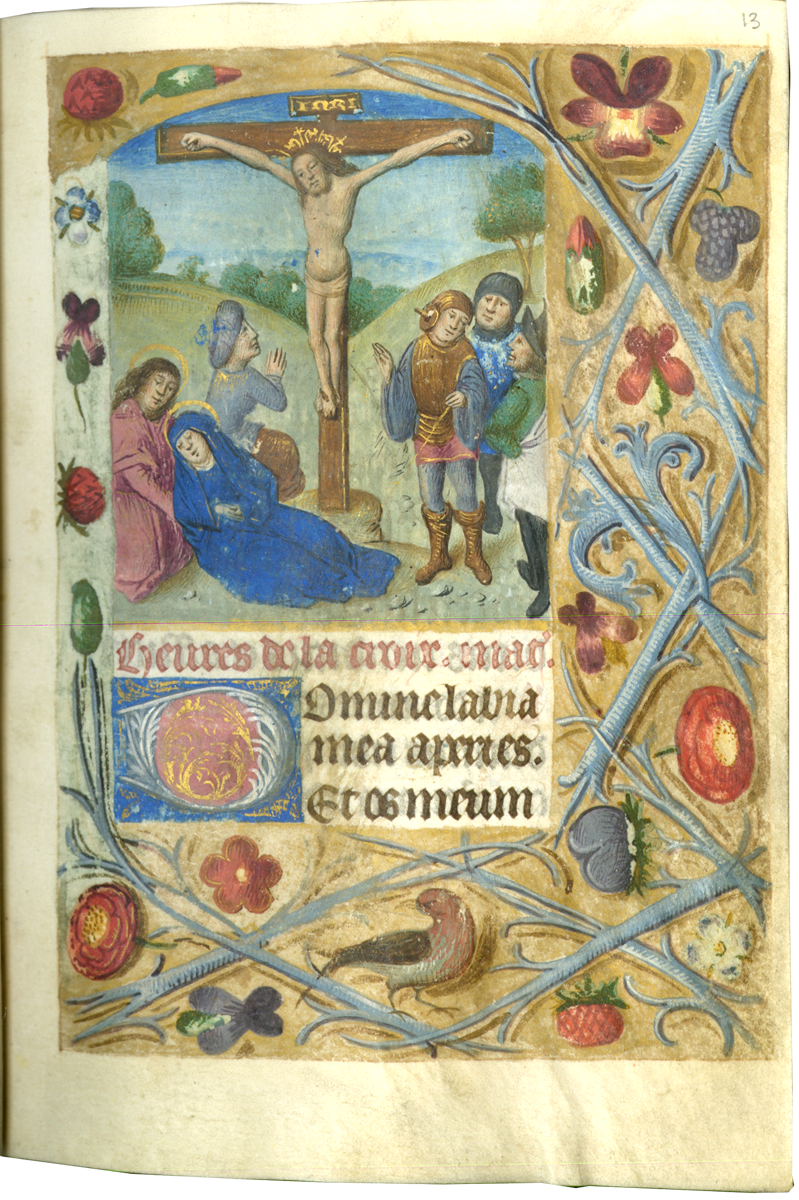 13
INRI
Heures de la croix. mat̄.
Domine labia
mea aperies.
Et os meum